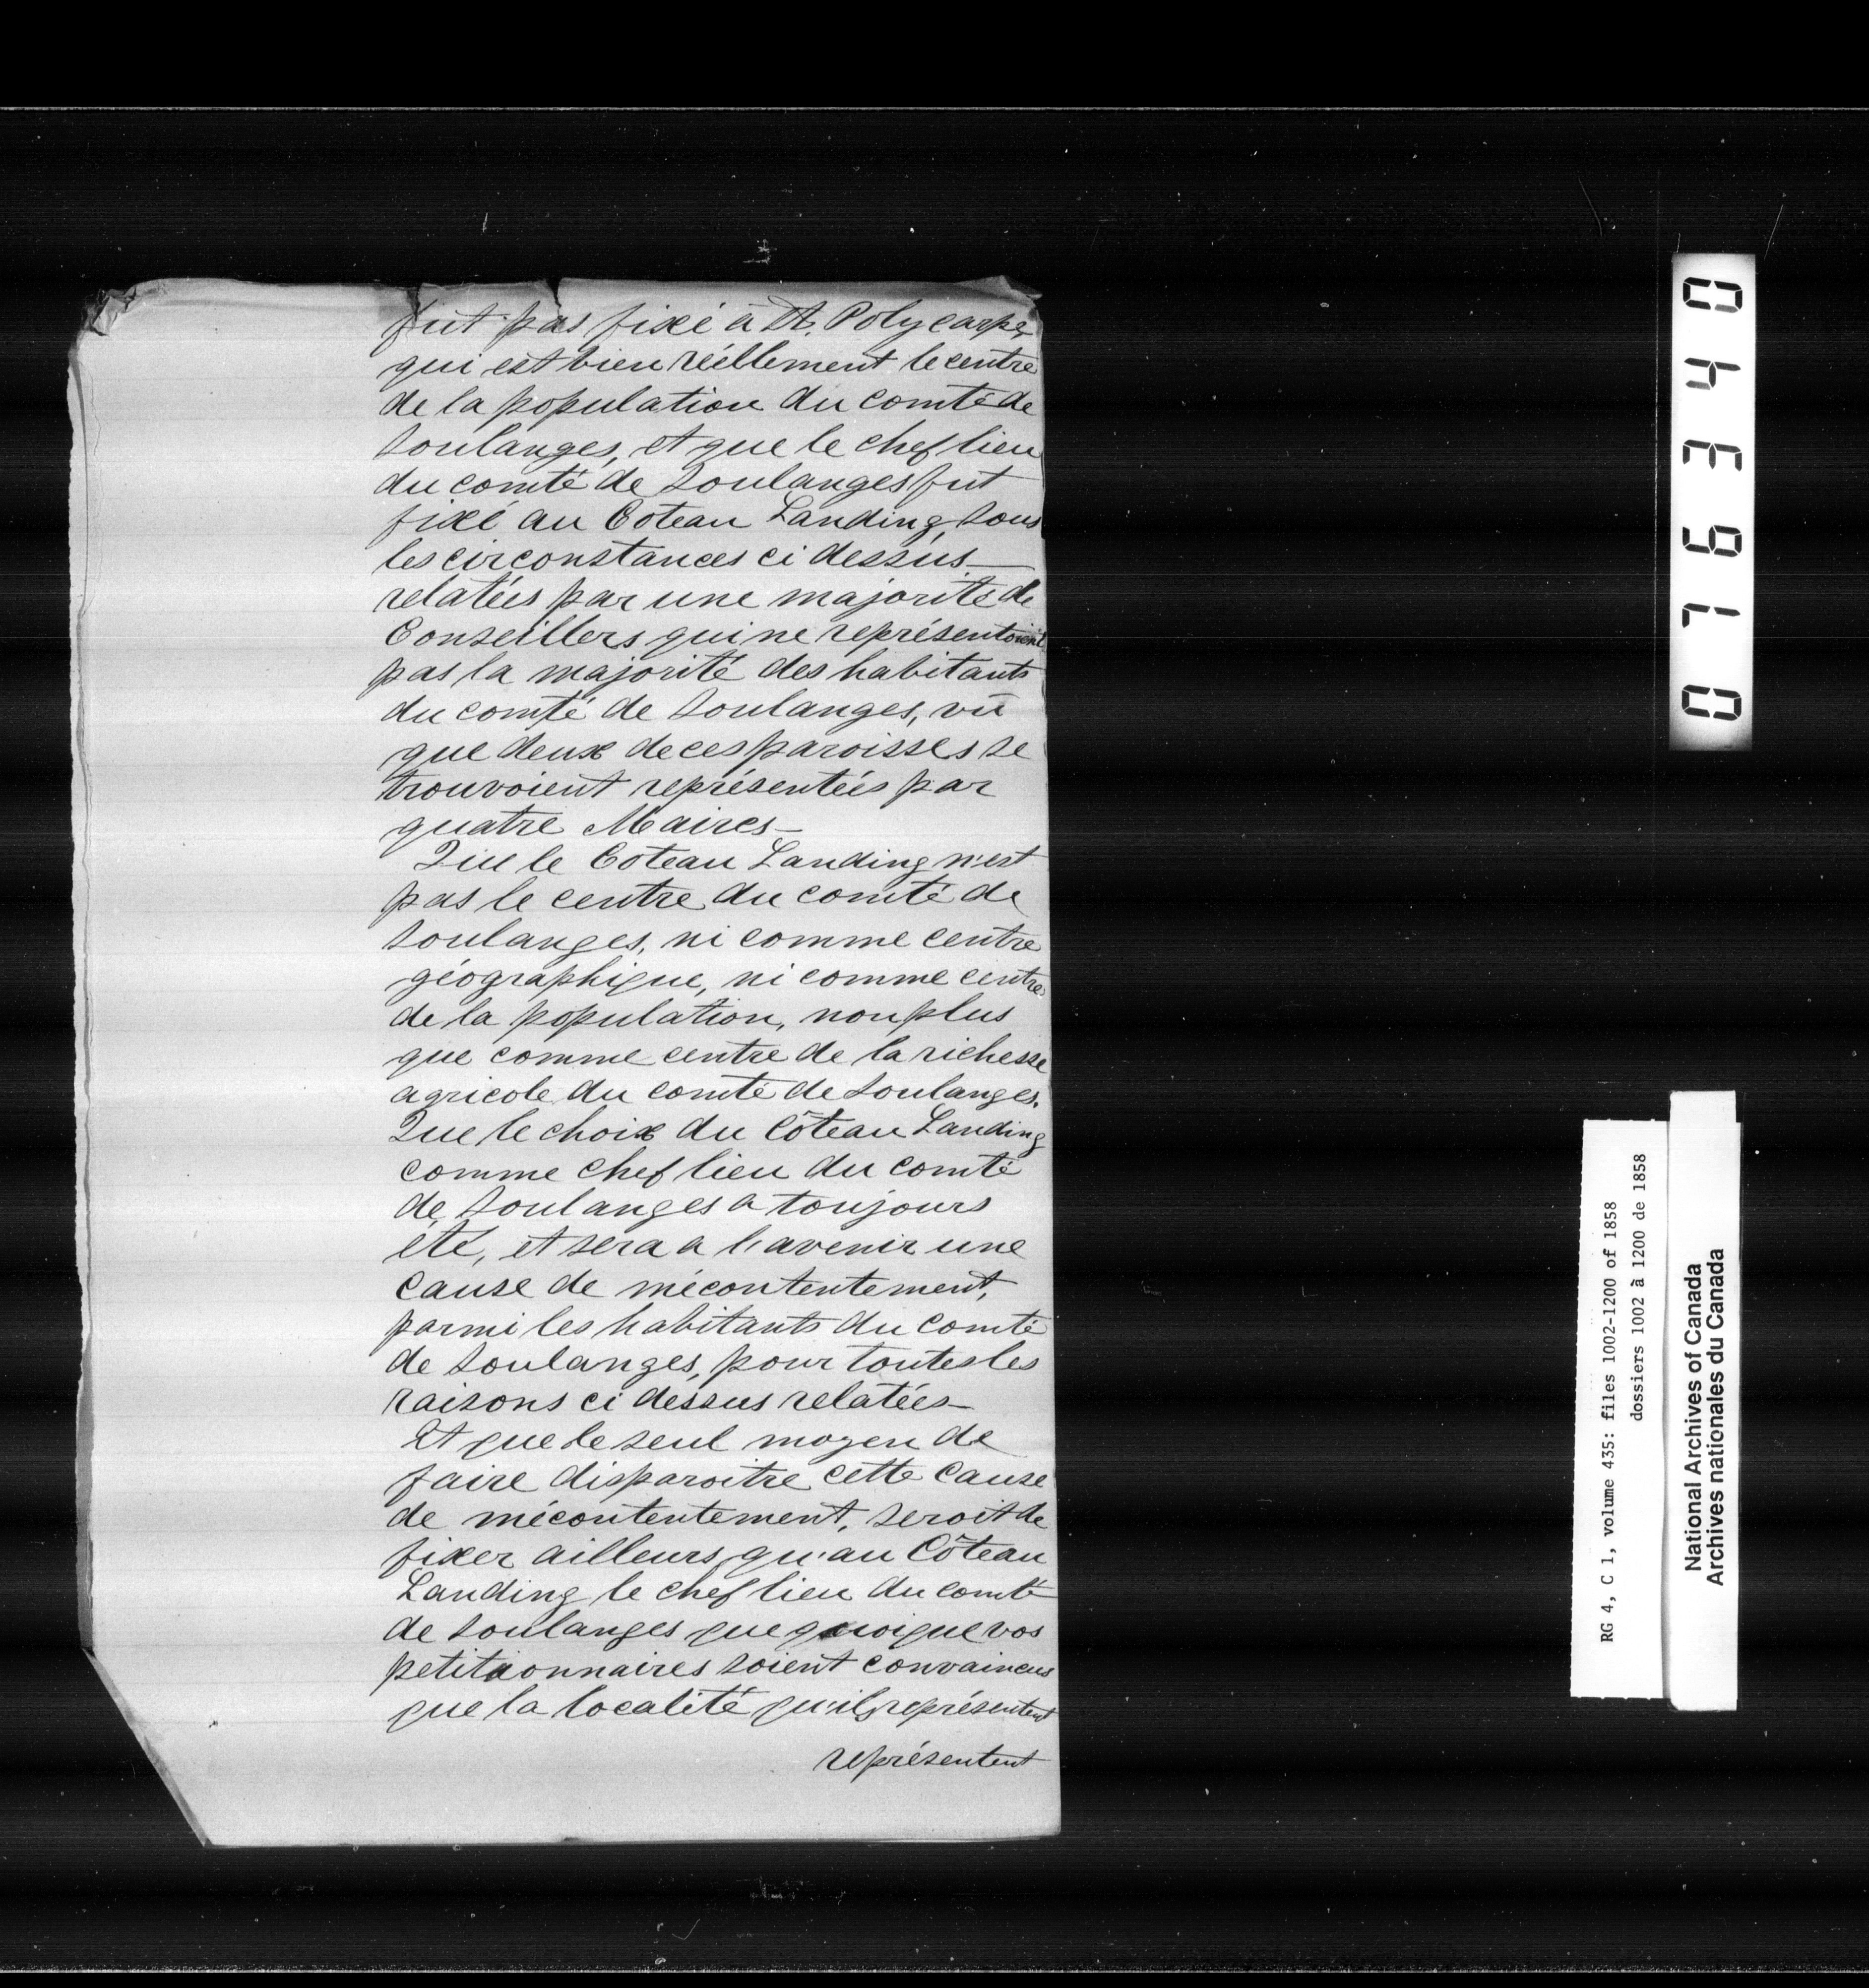 fut pas fixé à St. Polycarpe,
qui est bien réellement le centre
de la population du comté de
Soulanges, et que le chef lieu
du comté de Soulanges fut
fixé au Coteau Landing, sous
les circonstances ci dessus
relatées par une majorité de
Conseillers qui ne représentoient
pas la majorité des habitants
du comté de Soulanges, vû
que deux de ces paroisses se
trouvoient représentées par
quatre Maires_
Que le Coteau Landing n'est
pas le centre du comté de
Soulanges, ni comme centre
géographique, ni comme centre
de la population, non plus
que comme centre de la richesse
agricole du comté de Soulanges.
Que le choix du Côteau Landing
comme chef lieu du comté
de Soulanges a toujours
été, et sera a l'avenir une
cause de mécontentement,
parmi les habitants du comté
de Soulanges, pour toutes les
raisons ci dessus relatées_
Et que le seul moyen de
faire disparoitre cette cause
de mécontentement, seroit de
fixer ailleurs qu'au Côteau
Landing le chef lieu du comté
de Soulanges que quoique vos
petitionnaires soient convaincus
que la localité qu'ils représentent
représentent
076340
RG 4, C 1, volume 435: files 1002-1200 of 1858
dossiers 1002 à 1200 de 1858
National Archives of Canada
Archives nationales du Canada